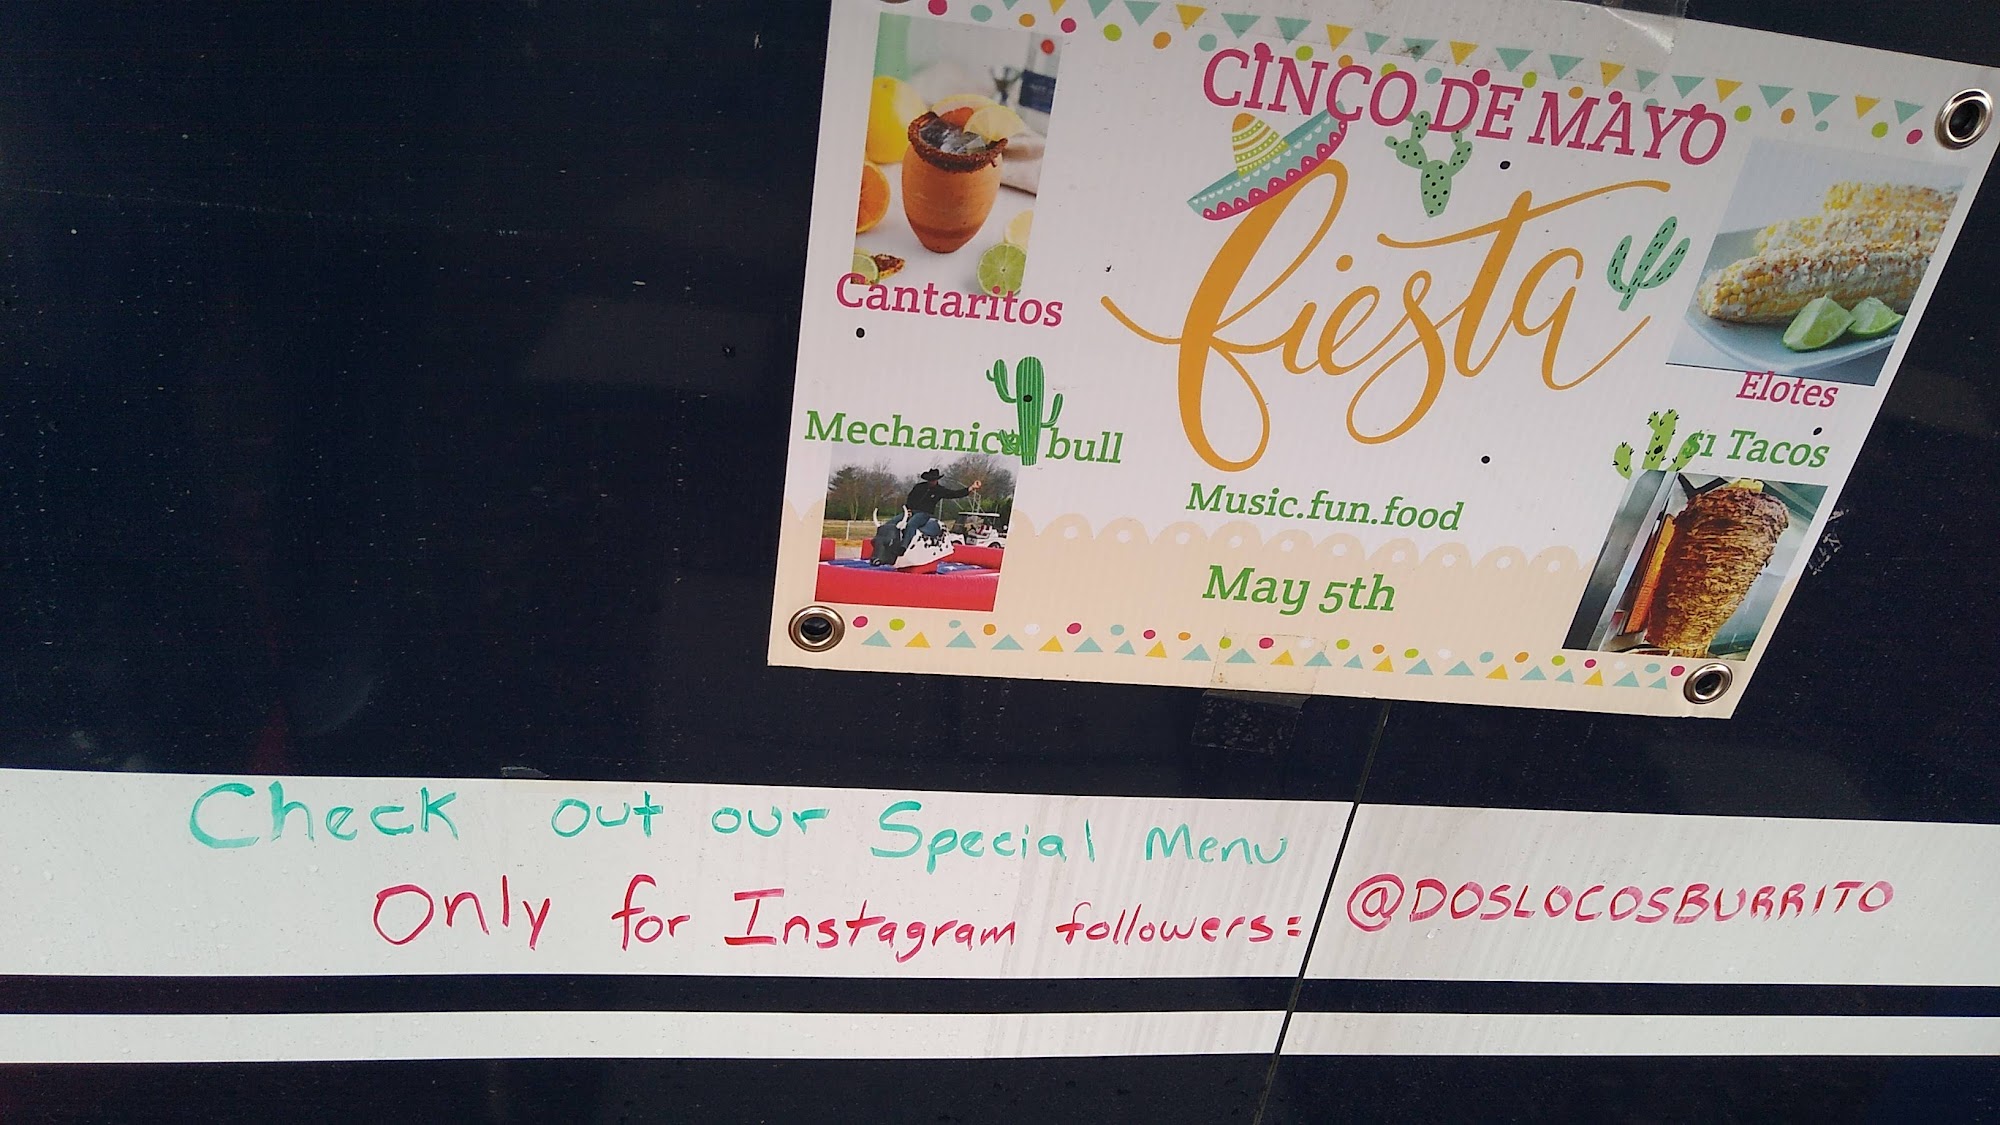 CINCO DE MAYO
fiesta
Cantaritos
Elotes
Mechanical bull
$1 Tacos
Music.fun.food
May 5th
Check out our Special Menu
Only for Instagram followers: @DOSLOCOSBURRITO